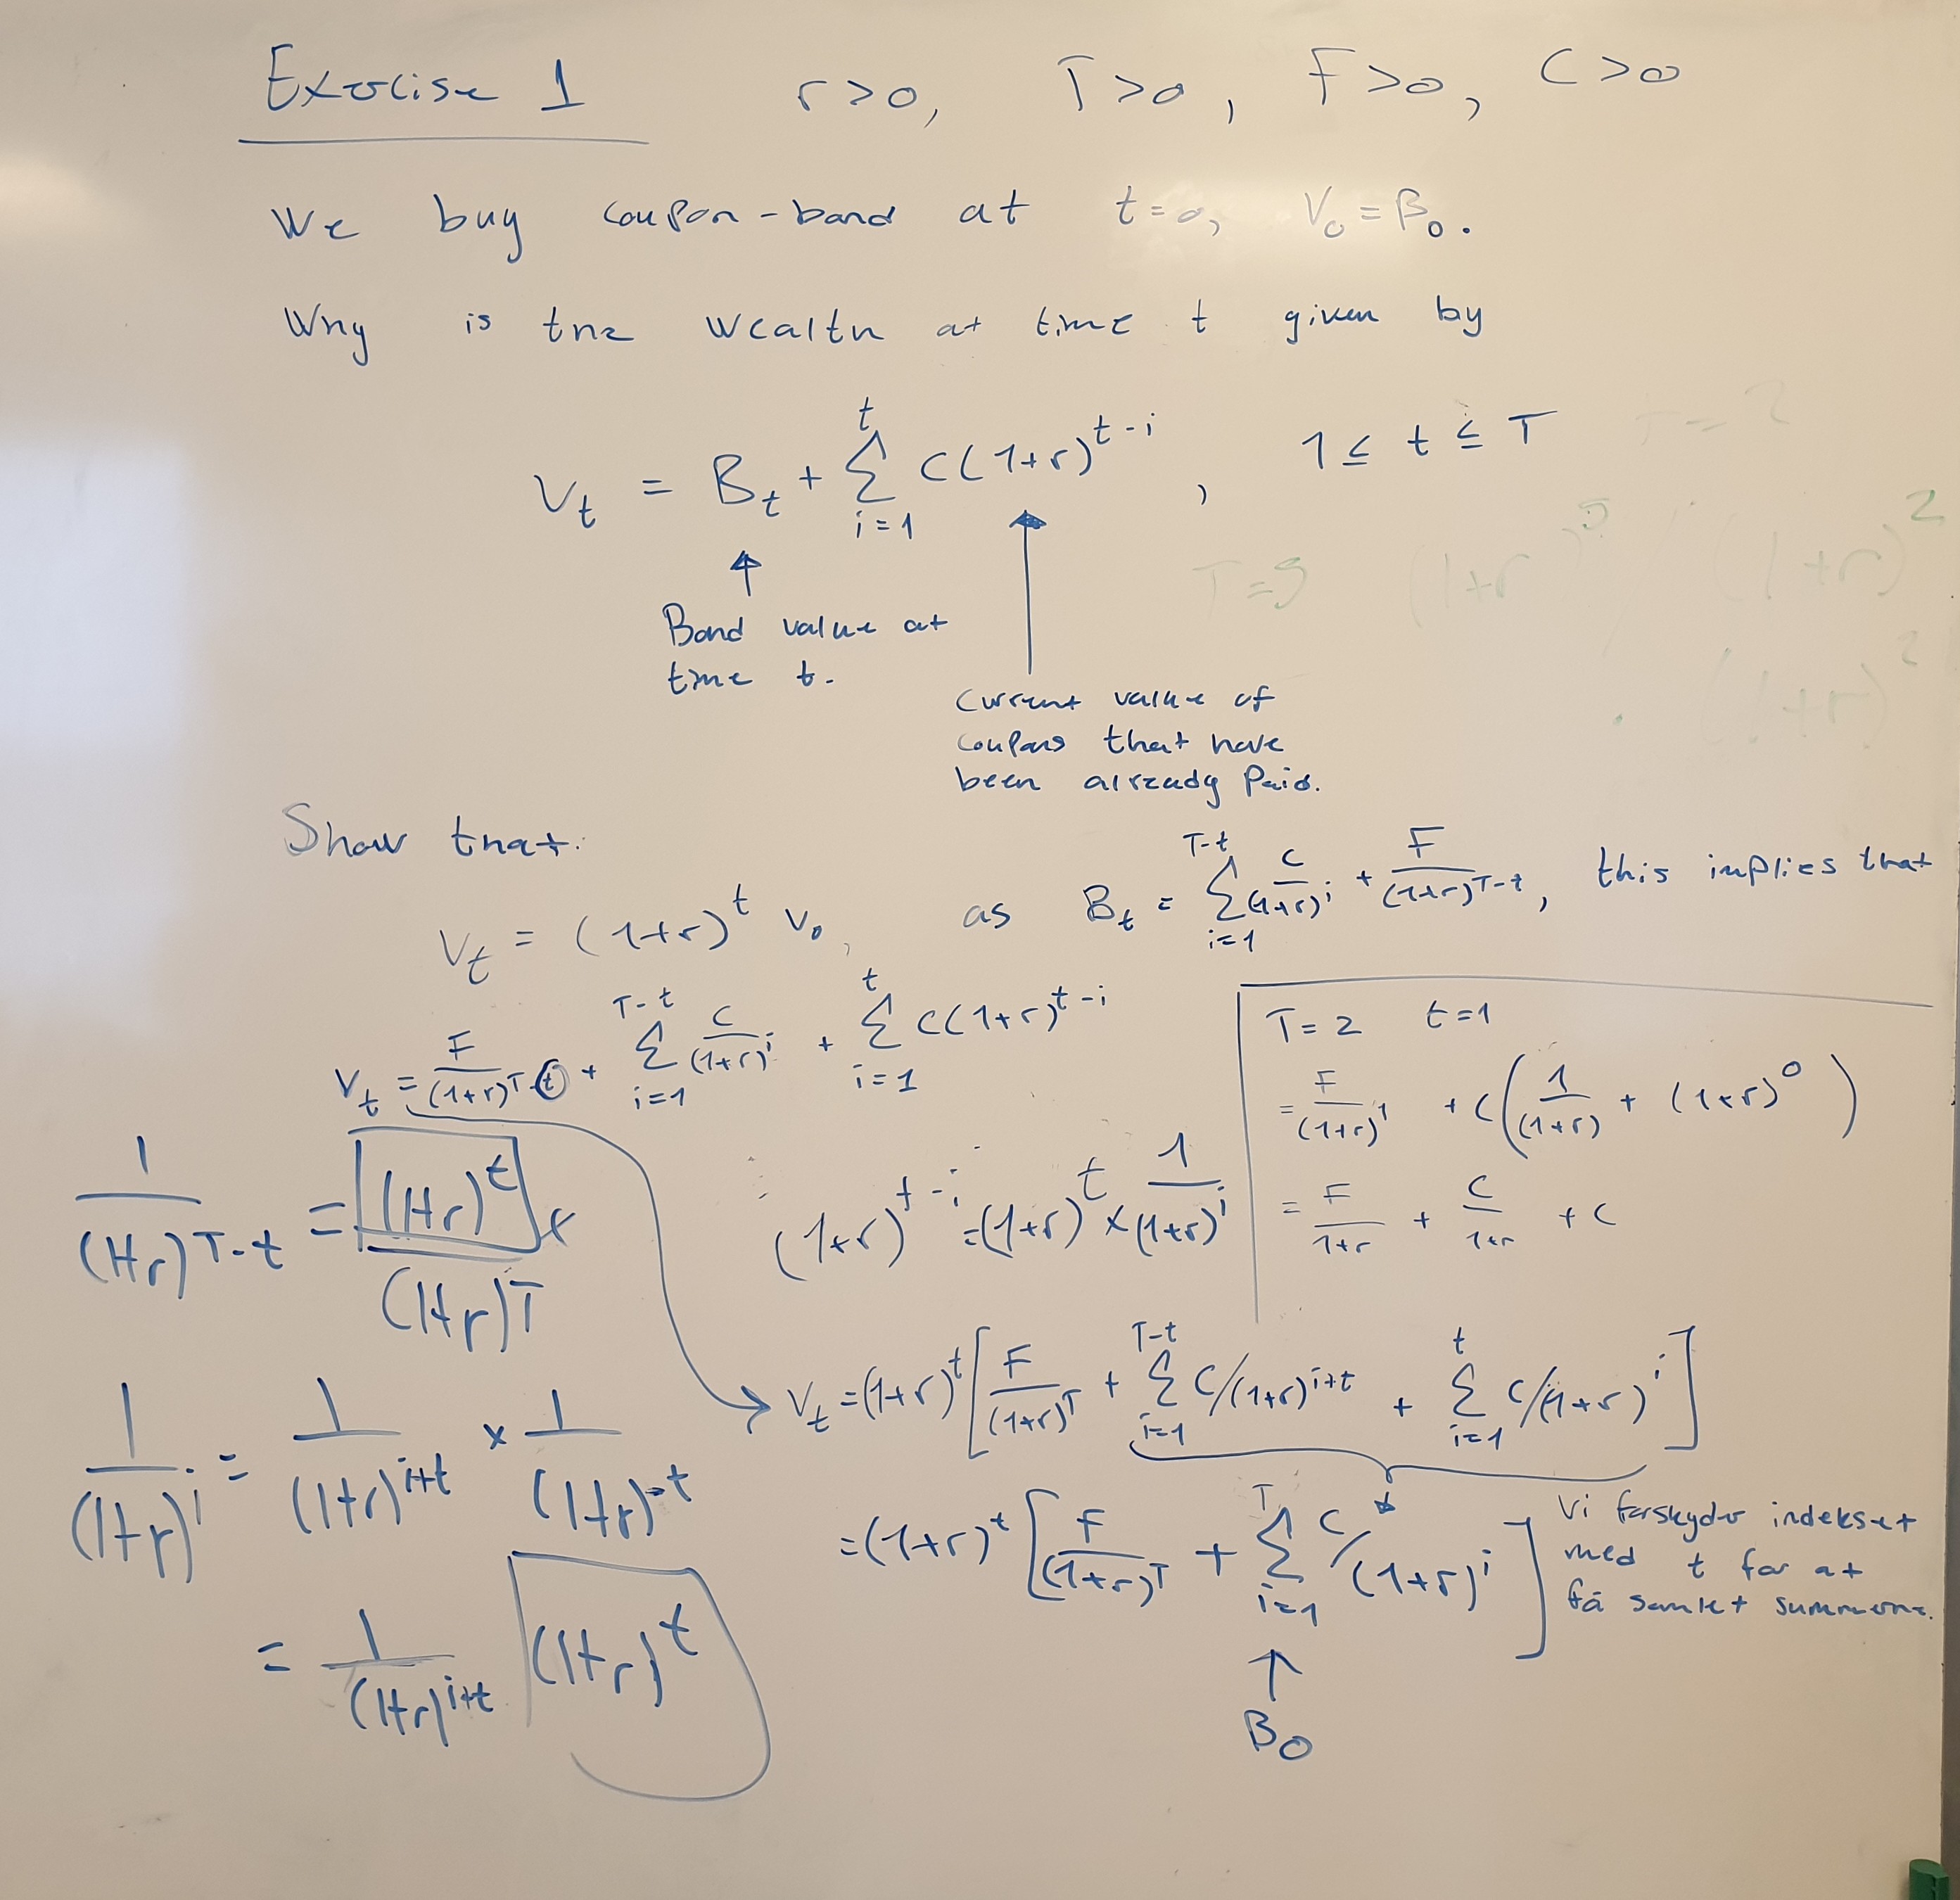 Exercise 1 r>0, T>0, F>0, C>0
We buy coupon-bond at t=0, V₀=B₀.
Why is the wealth at time t given by
V_t = B_t + \sum_{i=1}^{t} C(1+r)^{t-i}, 1 ≤ t ≤ T
Bond value at
time t.
Current value of
coupons that have
been already paid.
Show that:
V_t = (1+r)^t V₀, as B_t = \sum_{i=1}^{T-t} \frac{C}{(1+r)^i} + \frac{F}{(1+r)^{T-t}}, this implies that
V_t = \frac{F}{(1+r)^{T-t}} + \sum_{i=1}^{T-t} \frac{C}{(1+r)^i} + \sum_{i=1}^{t} C(1+r)^{t-i}
T=2 t=1
= \frac{F}{(1+r)^1} + C(\frac{1}{(1+r)} + (1+r)^0)
= \frac{F}{1+r} + \frac{C}{1+r} + C
\frac{1}{(1+r)^{T-t}} = \frac{(1+r)^t}{(1+r)^T}
(1+r)^{t-i} = (1+r)^t × \frac{1}{(1+r)^i}
V_t = (1+r)^t [\frac{F}{(1+r)^T} + \sum_{i=1}^{T-t} C/(1+r)^{i+t} + \sum_{i=1}^{t} C/(1+r)^i]
\frac{1}{(1+r)^i} = \frac{1}{(1+r)^{i+t}} × \frac{1}{(1+r)^{-t}}
= \frac{1}{(1+r)^{i+t}} (1+r)^t
= (1+r)^t [\frac{F}{(1+r)^T} + \sum_{i=1}^{T} C/(1+r)^i]
Vi forskyder indekset
med t for at
få samlet summerne.
B₀
t=2
T=5 (1+r)^5 (1+r)^2
(1+r)^2